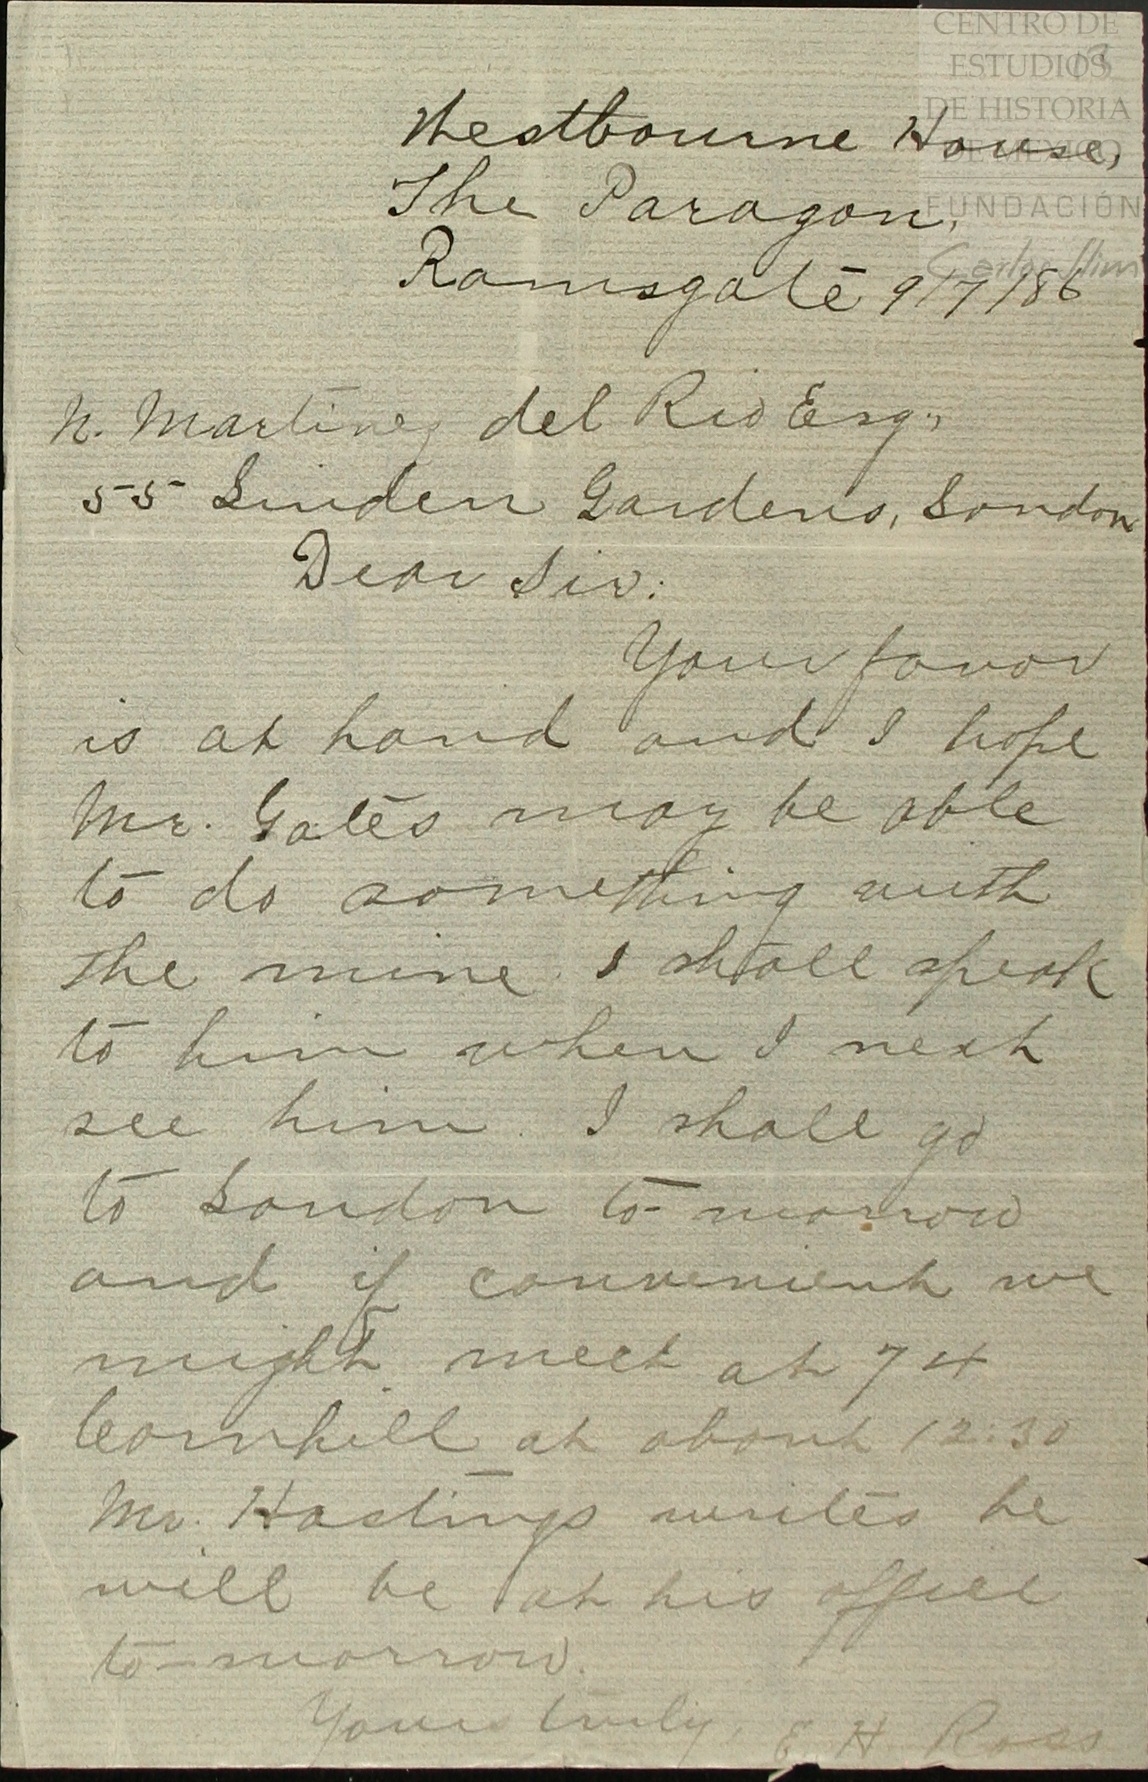 CENTRO DE
ESTUDIOS
DE HISTORIA
DE MEXICO
FUNDACIÓN
Carlos Slim
13
Westbourne House,
The Paragon,
Ramsgate 9/7/86
N. Martinez del Rio Esq.,
55 Linden Gardens, London
Dear Sir:
Your favor
is at hand and I hope
Mr. Gates may be able
to do something with
the mine. I shall speak
to him when I next
see him. I shall go
to London to-morrow
and if convenient we
might meet at 74
Cornhill at about 12:30
Mr. Hastings writes he
will be at his office
to-morrow.
Yours truly, E H Ross